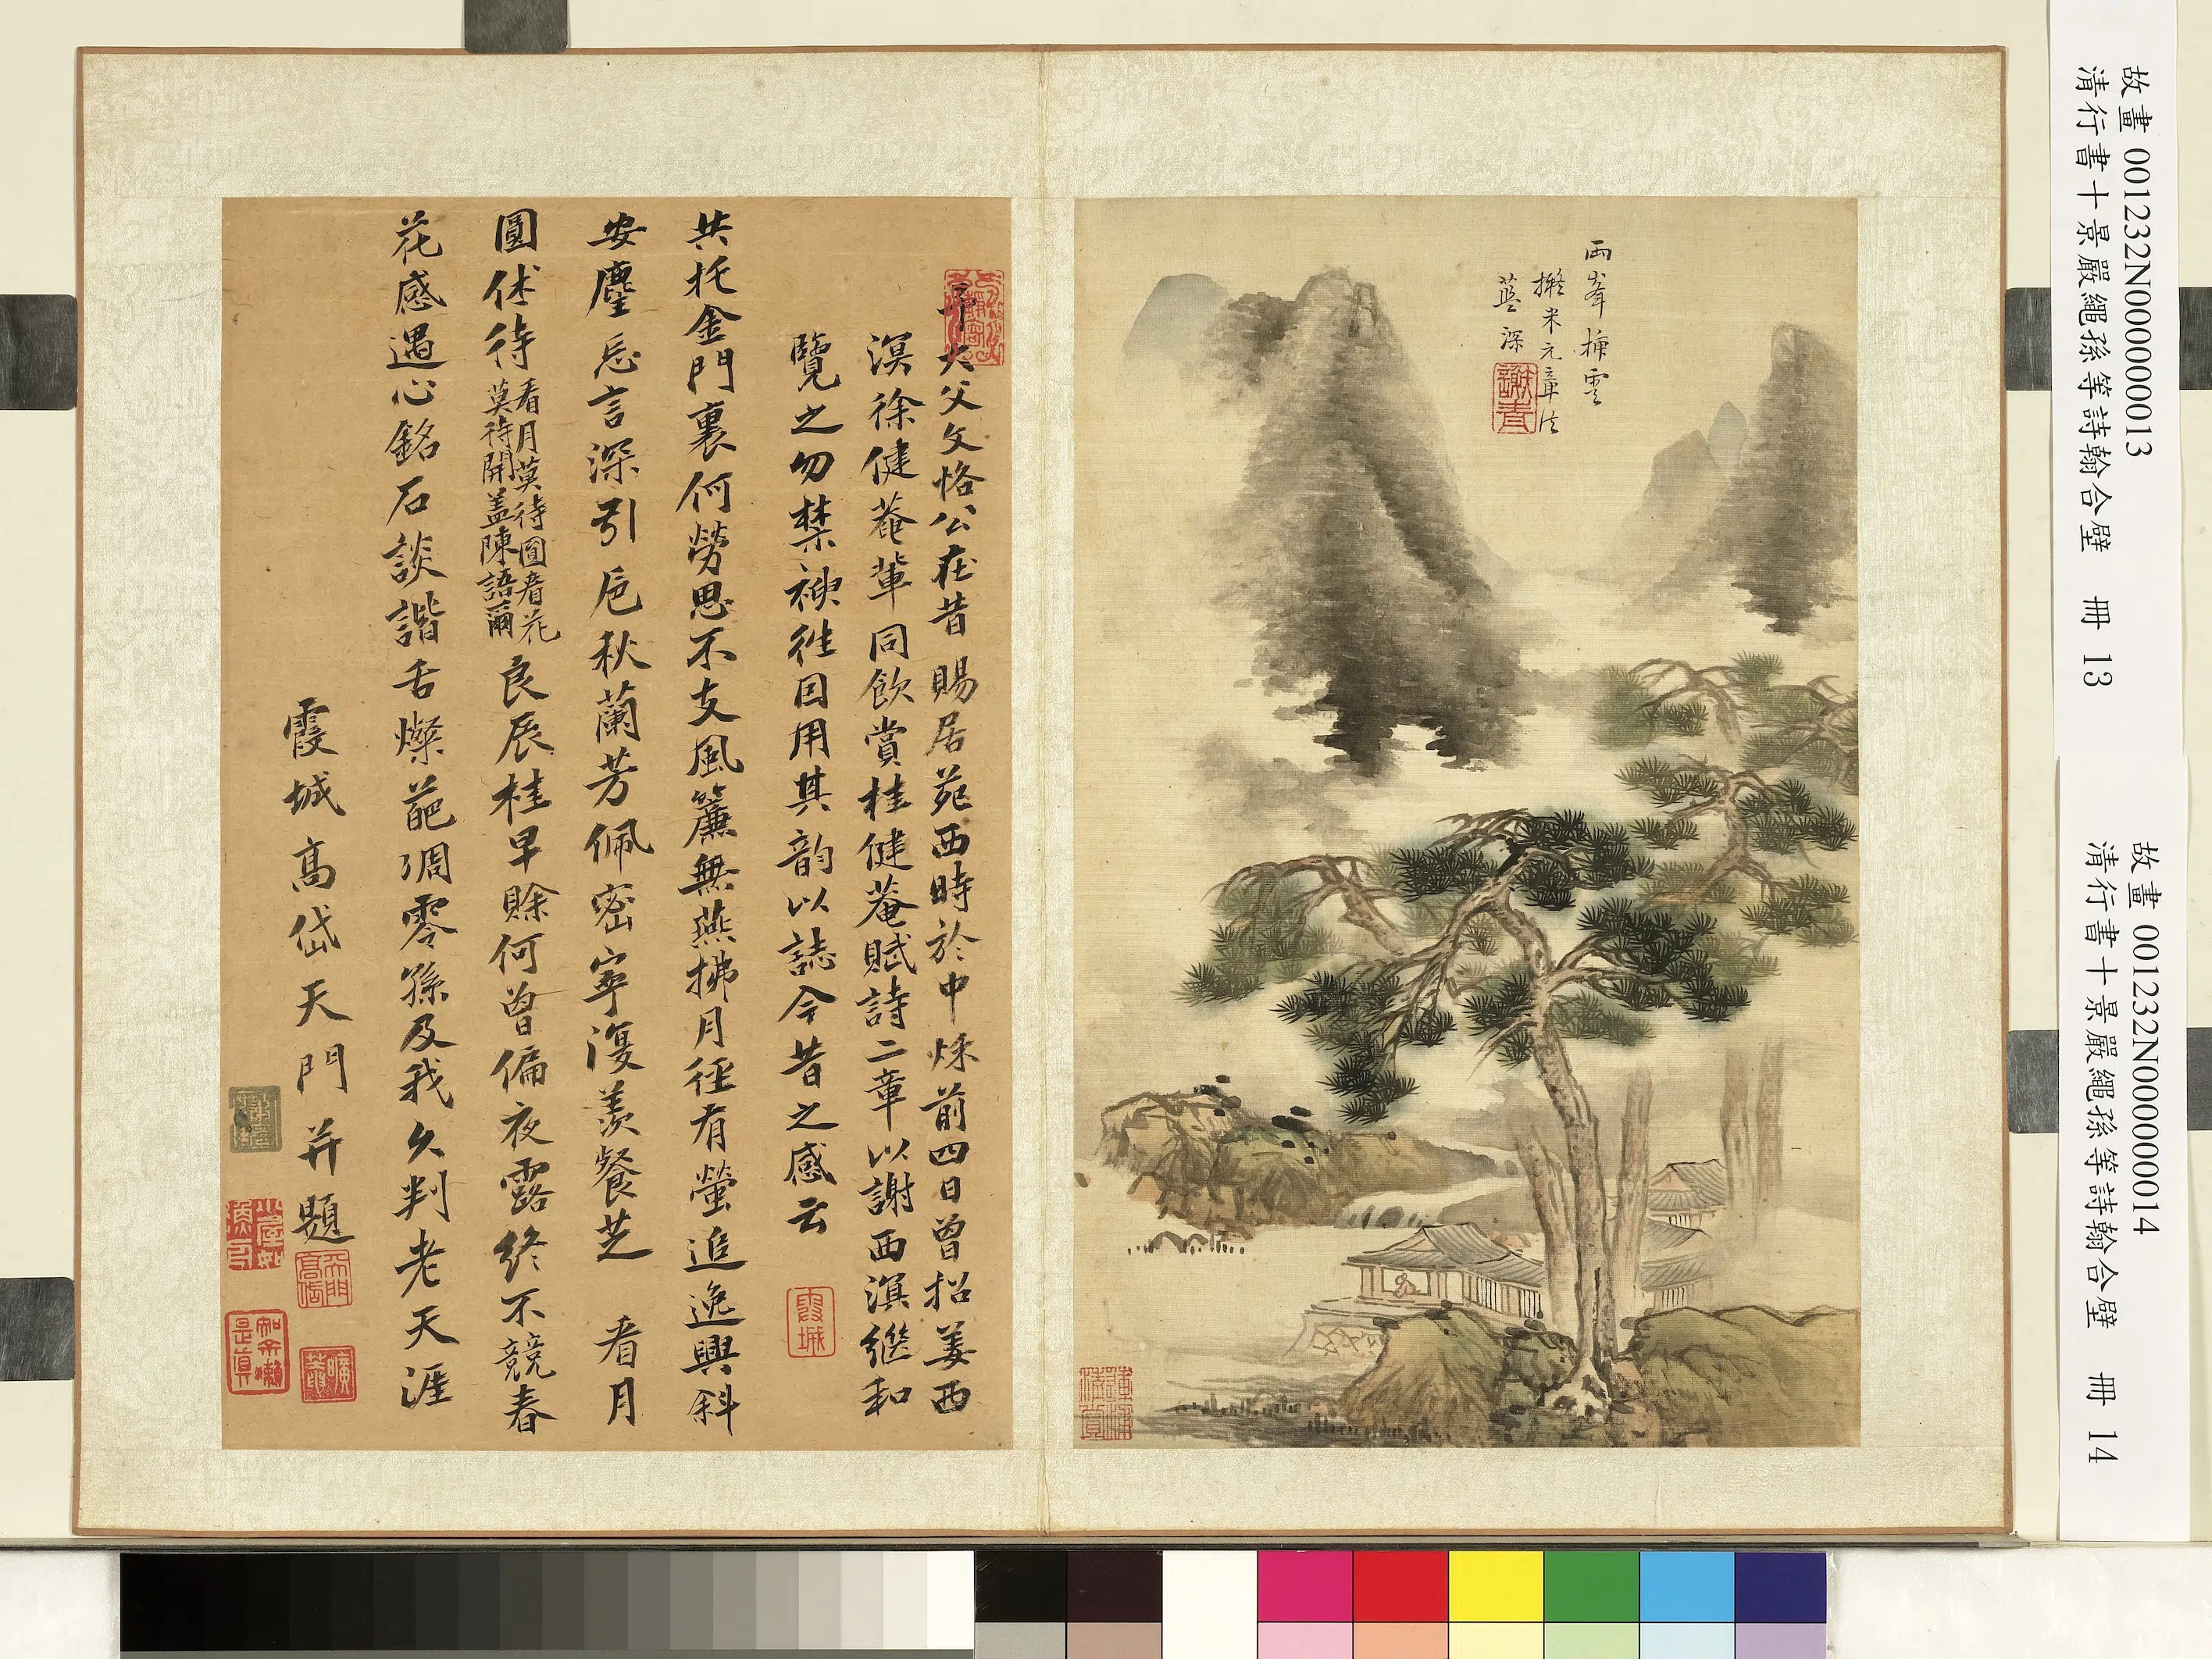 故畫 001232N000000013
清行書十景嚴繩孫等詩翰合壁 冊 13
故畫 001232N000000014
清行書十景嚴繩孫等詩翰合壁 冊 14
兩峯插雲
擬米元章法
藍深
大父文恪公在昔賜居苑西時於中秌前四日曾招姜西
溟徐健菴軰同飲賞桂健菴賦詩二章以謝西溟繼和
覽之勿禁神徃因用其韵以誌今昔之感云
霞城
共托金門裏何勞思不支風簾無燕拂月徑有螢追逸興斜
安塵忘言深引卮秋蘭芳佩密寧復羨餐芝 看月
圓休待
看月莫待圓看花
莫待開盖陳語爾
良辰桂早賖何曾偏夜露終不競春
花感遇心銘石談諧舌燦葩凋零孫及我久判老天涯
霞城高岱天門并題